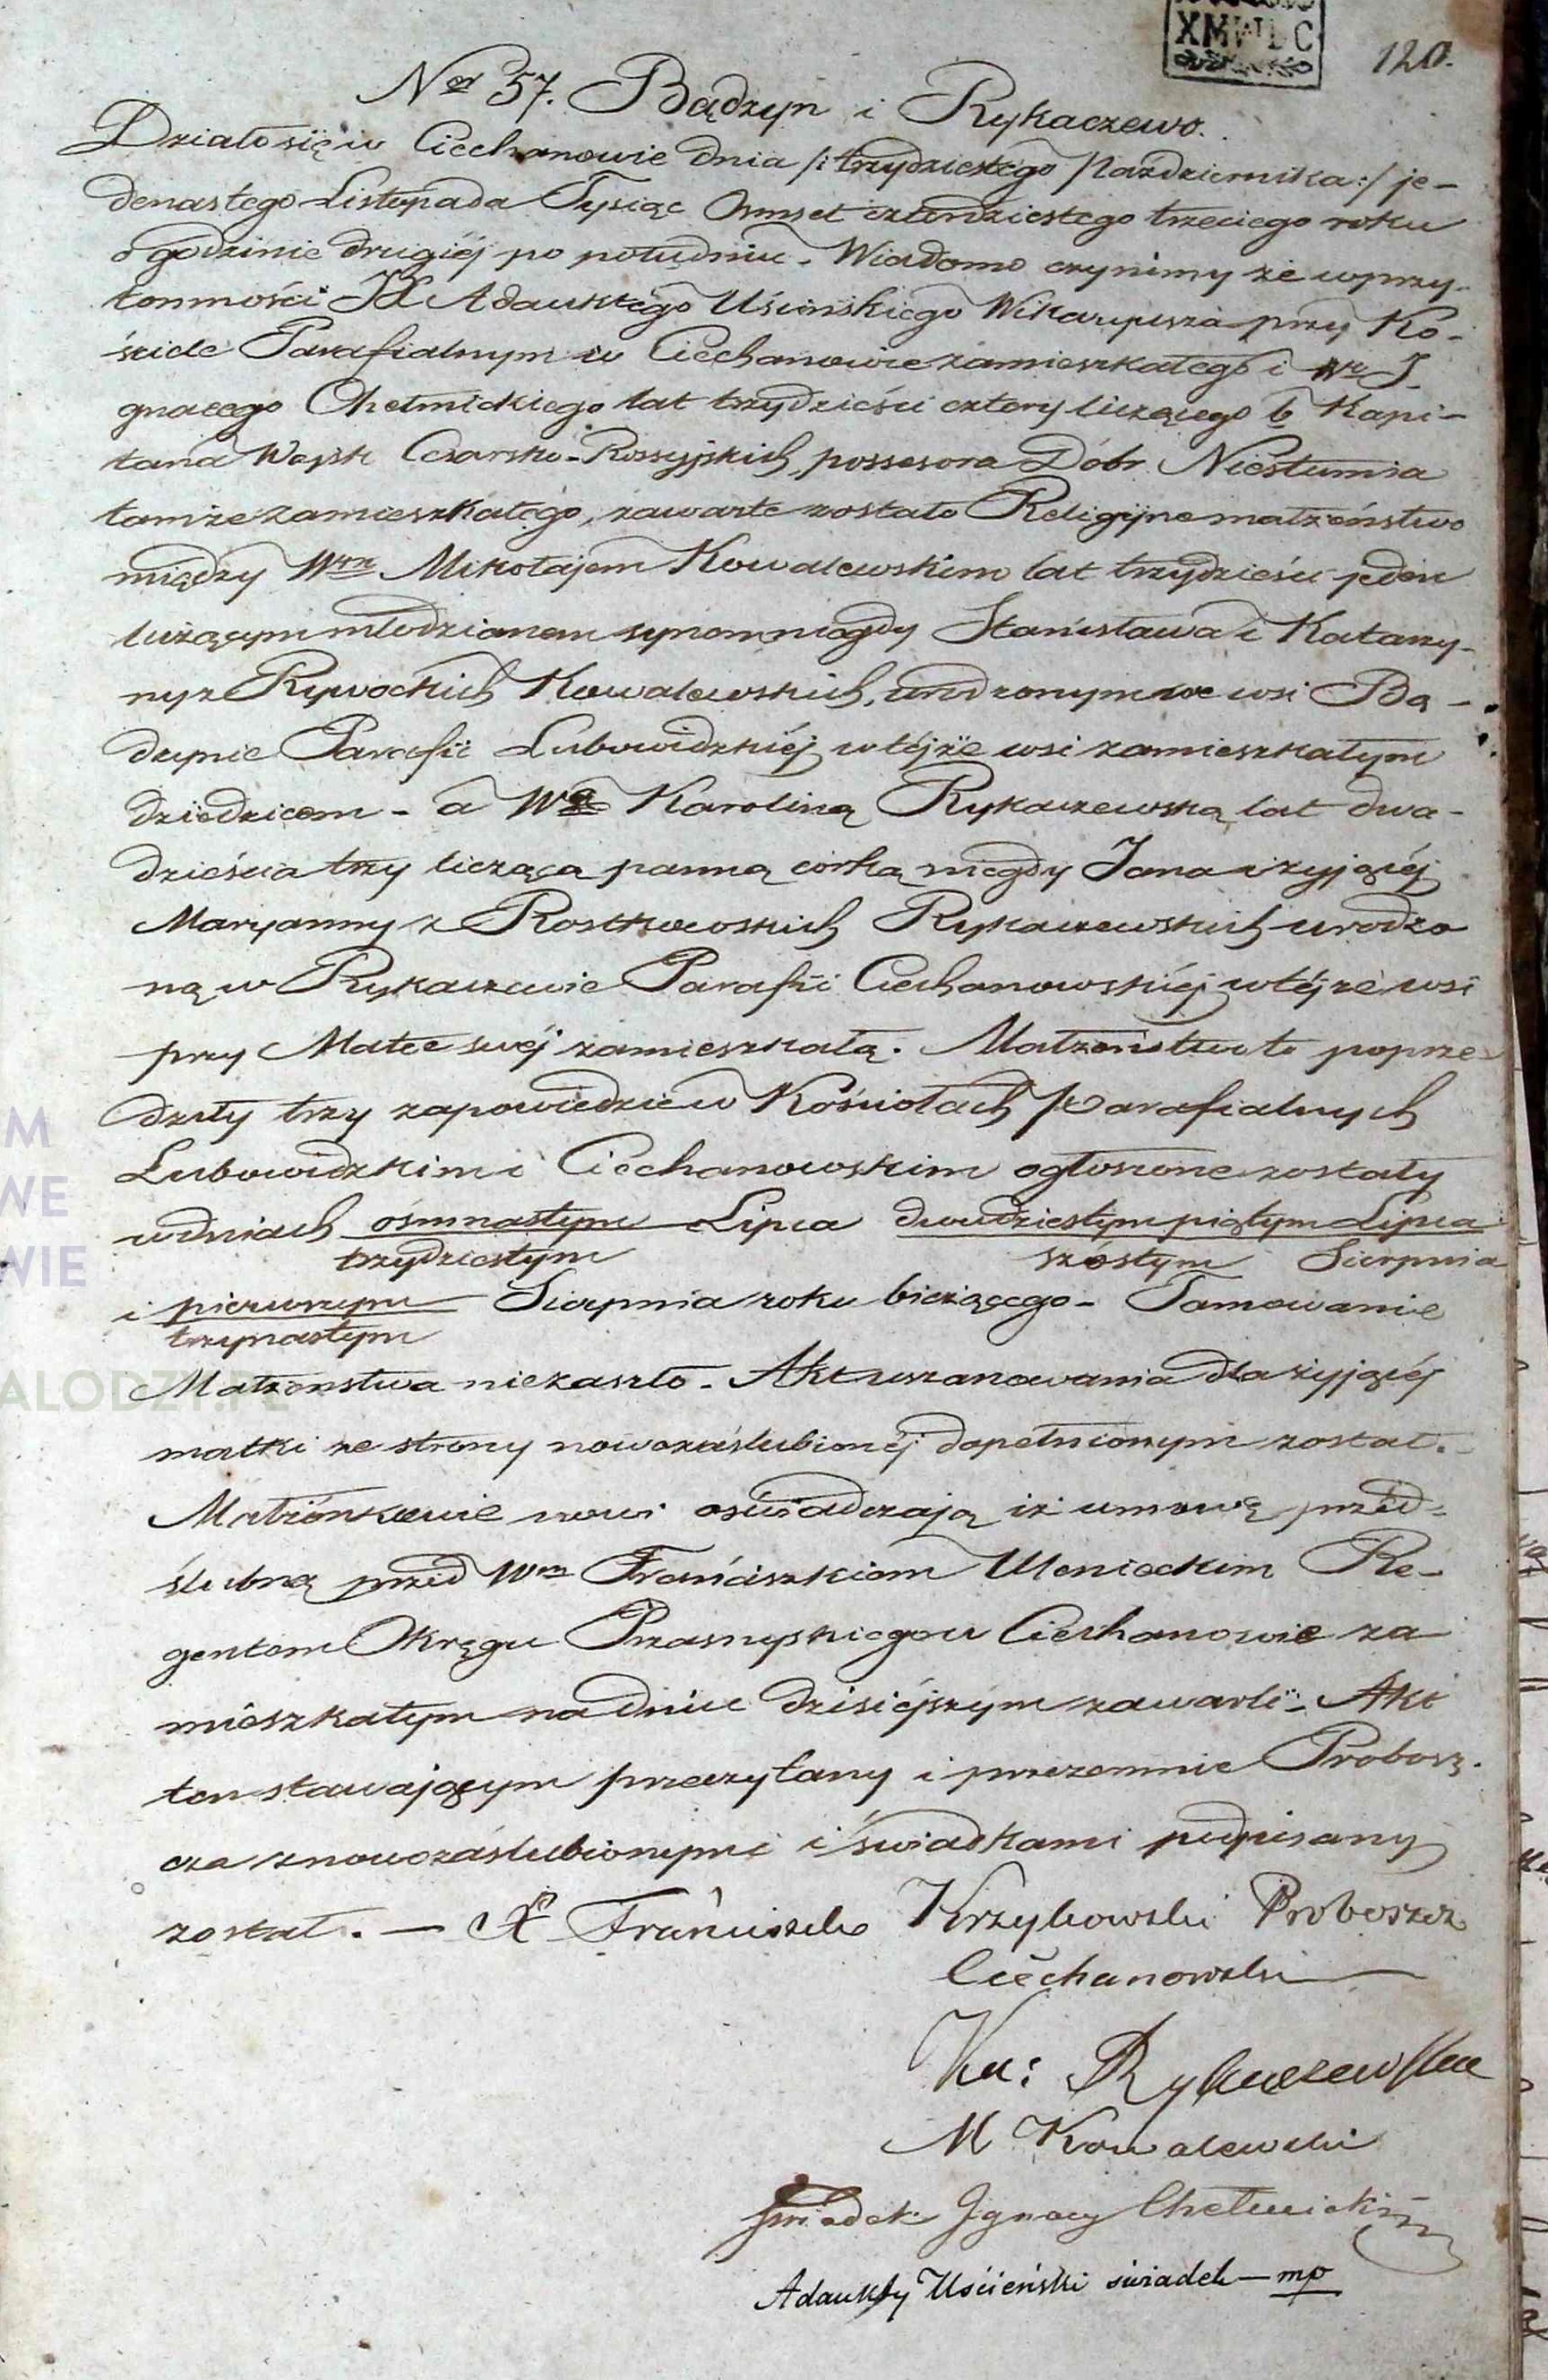 XMWDC
120.
Nr 57. Bądzyn i Rykaczewo.
Działo się w Ciechanowie dnia /: trzydziestego Października :/ je-
denastego Listopada Tysiąc Ośmset czterdziestego trzeciego roku
o godzinie drugiéj po południu. Wiadomo czynimy że w przy-
tomności JX Adauktego Uścińskiego Wikaryusza przy Ko-
ściele Parafialnym w Ciechanowie zamieszkałego i Wo I-
gnacego Chełmickiego lat trzydzieści cztery liczącego b Kapi-
tana Wojsk Cesarsko-Rossyjskich, possesora Dóbr Niestumia
tamże zamieszkałego, zawarte zostało Religijne małżeństwo
między Wm Mikołajem Kowalewskim lat trzydzieści jeden
liczącym młodzianem synem niegdy Stanisława i Katarzy-
ny z Rywockich Kowalewskich, urodzonym we wsi Bą-
dzynie Parafii Lubowidzkiéj w téjże wsi zamieszkałym
dziedzicem - a Wą Karoliną Rykaczewską lat dwa-
dzieścia trzy liczącą panną córką niegdy Jana i żyjącéj
Maryanny z Rostkowskich Rykaczewskich urodzo
ną w Rykaczewie Parafii Ciechanowskiéj w téjże wsi
przy Matce swéj zamieszkałą. Małżeństwo to poprze-
dziły trzy zapowiedzie w Kościołach Parafialnych
Lubowidzkim i Ciechanowskim ogłoszone zostały
w dniach ośmnastym Lipca dwudziestym piątym Lipca
trzydziestym szóstym Sierpnia
i pierwszym Sierpnia roku bieżącego - Tamowanie
trzynastym
Małżeństwa nie zaszło - Akt uszanowania dla żyjącéj
matki ze strony nowozaślubionéj dopełnionym został.
Małżonkowie nowi oświadczają iż umowę przed-
ślubną przed Wm Franciszkiem Ulenieckim Re-
gentem Okręgu Przasnyskiego w Ciechanowie za
mieszkałym na dniu dzisiéjszym zawarli - Akt
ten stawającym przeczytany i przezemnie Probosz-
cza z nowozaślubionymi i świadkami podpisany
został. — X Franciszek Krzykowski Proboszcz
Ciechanowski
Ka: Rykaczewska
M Kowalewski
Świadek Ignacy Chełmicki
Adaukty Uścieński świadek — mp
M
WE
WIE
ALODZY.PL